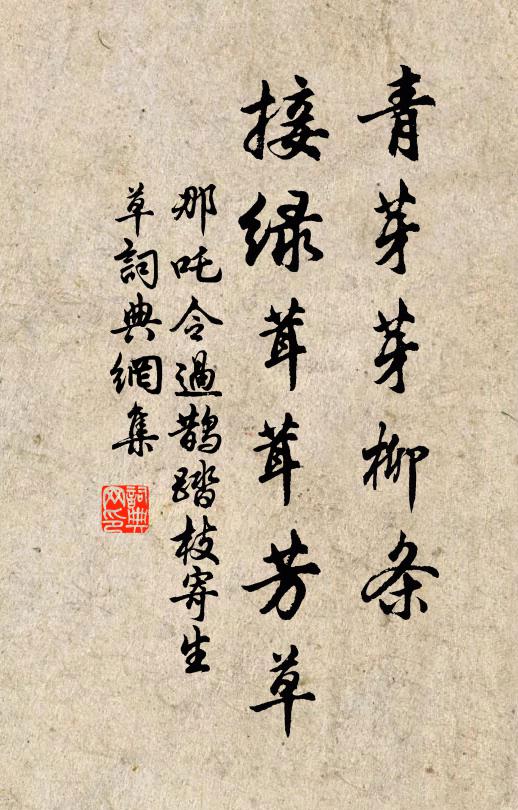 青芽芽柳条
接绿茸茸芳草
那吒令过鹊踏枝寄生
草詞典網集
詞典
网印